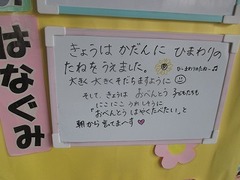 はなぐみ
きょうは かだんに ひまわりの
たねをうえました。
ひーまわりのたねー♪
大きく 大きくそだちますように
そして、きょうは おべんとう 子どもたちも
にこにこ うれしそうに
「おべんとう はやくたべたい」と
朝から言ってまーす♥